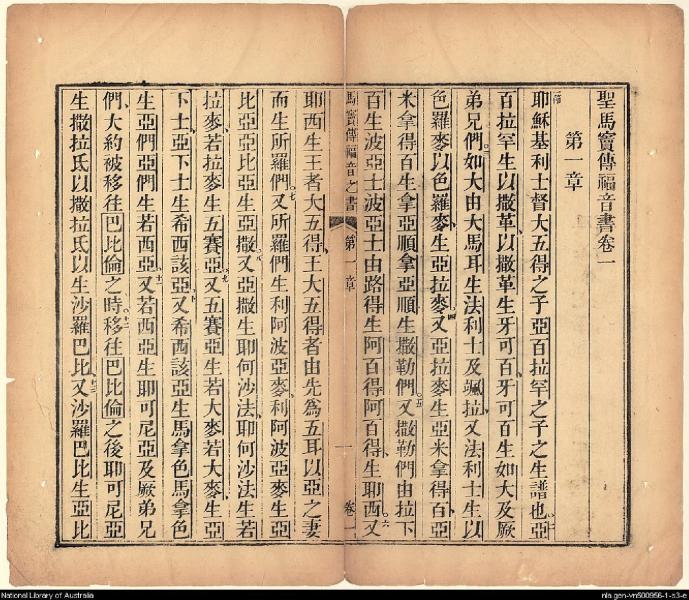 聖馬竇傳福音書卷一
第一章
一節耶穌基利士督大五得之子亞百拉罕之子之生譜也○二亞
百拉罕生以撒革以撒革生牙可百牙可百生如大及厥
弟兄們○三如大由大馬耳生法利士及颯拉又法利士生以
色羅麥以色羅麥生亞拉麥○四又亞拉麥生亞米拿得百亞
米拿得百生拿亞順拿亞順生撒勒們○五又撒勒們由拉下
百生波亞士波亞士由路得生阿百得阿百得生耶西○六又
馬竇傳福音之書 第一章 一 卷一
耶西生王者大五得王大五得者由先為五耳以亞之妻
而生所羅們○七又所羅們生利阿波亞麥利阿波亞麥生亞
比亞亞比亞生亞撒○八又亞撒生耶何沙法耶何沙法生若
拉麥若拉麥生五賽亞○九又五賽亞生若大麥若大麥生亞
下士亞下士生希西該亞○十又希西該亞生馬拿色馬拿色
生亞們亞們生若西亞○十一又若西亞生耶可尼亞及厥弟兄
們大約被移往巴比倫之時○十二移往巴比倫之後耶可尼亞
生撒拉氐以撒拉氐以生沙羅巴比○十三又沙羅巴比生亞比
National Library of Australia
nla.gen-vn500956-1-s3-e